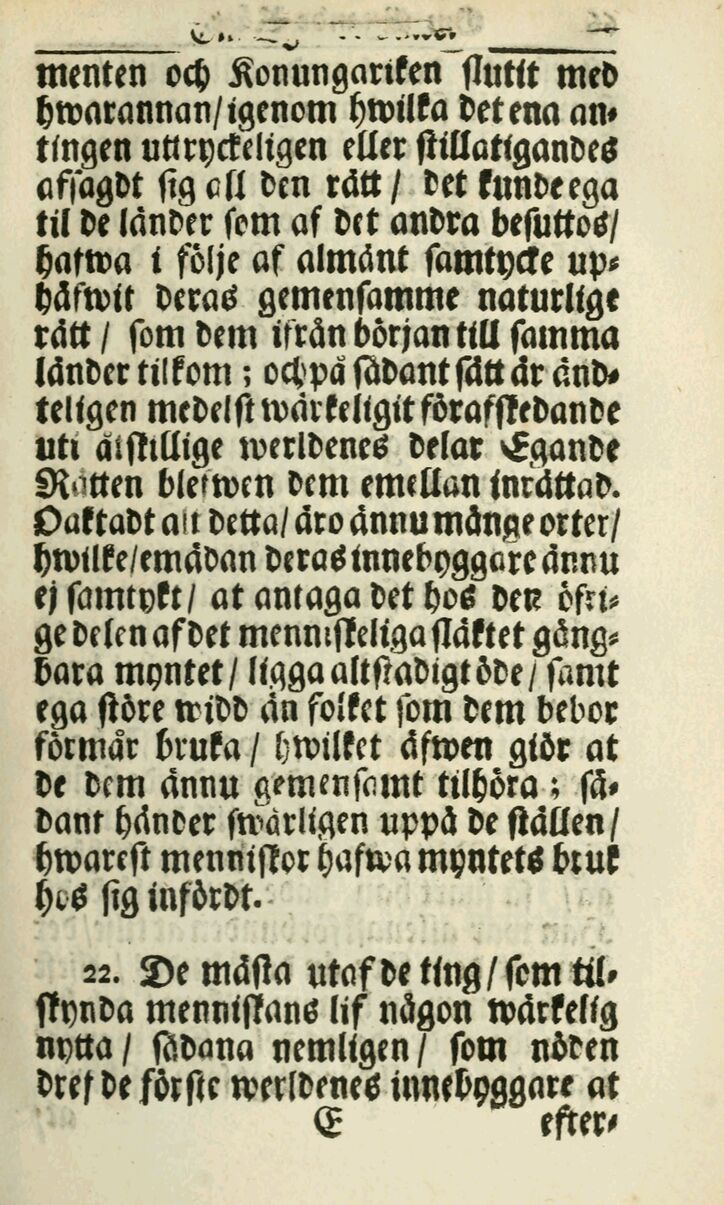 menten och Konungariken slutit med
hwarannan/igenom hwilka det ena an-
tingen uttryckeligen eller stillatigandes
afsagdt sig all den rätt / det kunde ega
til de länder som af det andra besuttos/
hafwa i följe af almänt samtycke up-
häfwit deras gemensamme naturlige
rätt / som dem ifrån början till samma
länder tilkom ; och på sådant sätt är änd-
teligen medelst wärkeligit förafskedande
uti åtskillige werldenes delar Egande
Rätten blefwen dem emellan inrättad.
Oaktadt alt detta/ äro ännu månge orter/
hwilke/emädan deras innebyggare ännu
ej samtykt / at antaga det hos den öfri-
ge delen af det menniskeliga släktet gång-
bara myntet / ligga altstadigt öde / samt
ega större widd än folket som dem bebor
förmår bruka / hwilket äfwen giör at
de dem ännu gemensamt tilhöra ; så-
dant händer swårligen uppå de ställen/
hwarest menniskor hafwa myntets bruk
hos sig infördt.
22. De mästa utaf de ting / som til-
skynda menniskans lif någon wärkelig
nytta / sådana nemligen / som nöden
dref de förste werldenes innebyggare at
E efter-